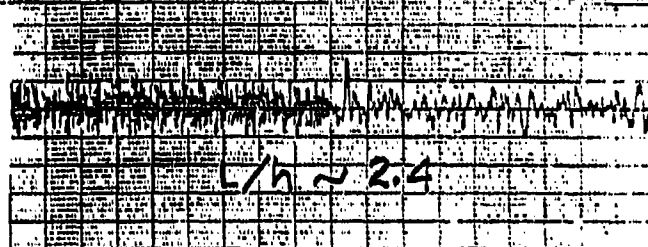 L/h ~ 2.4